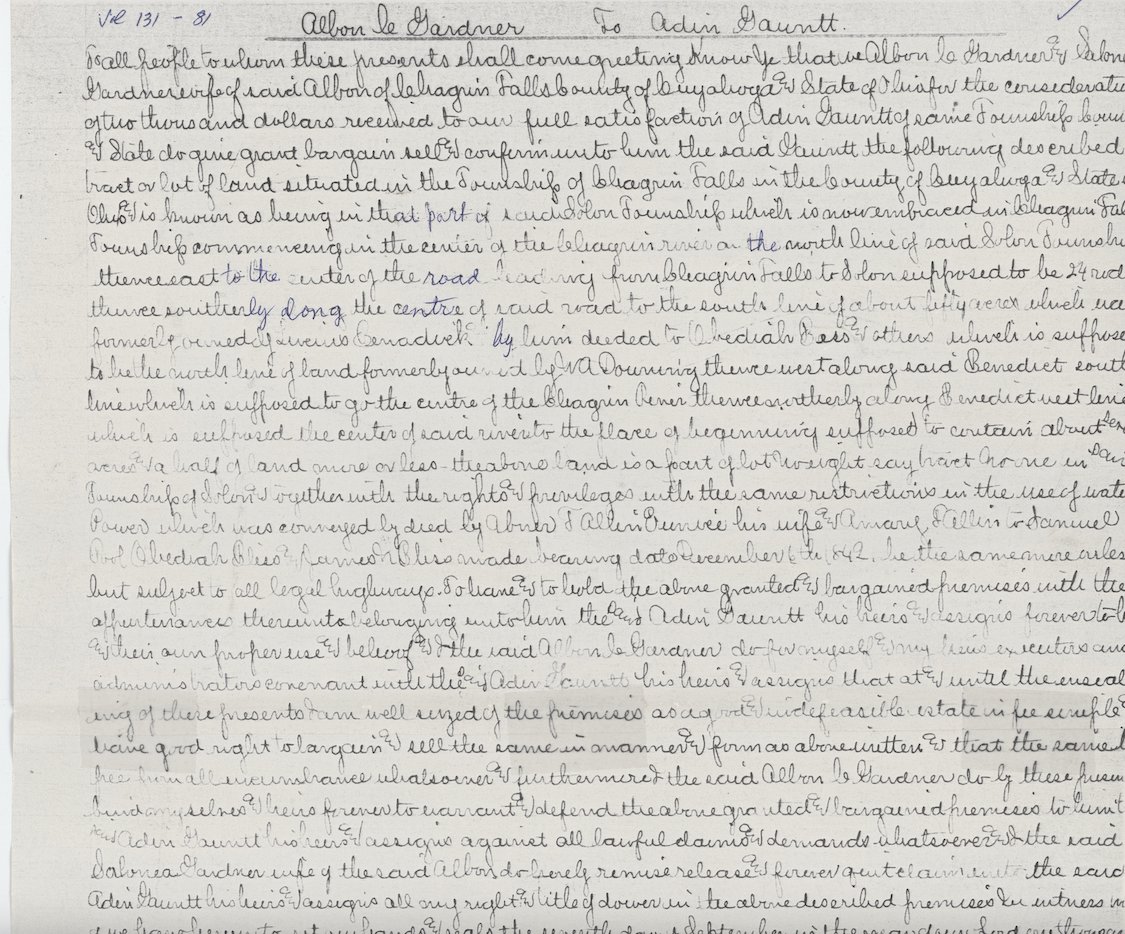 Vol 131 - 81
Albon C Gardner To Adin Gauntt.
To all people to whom these presents shall come greeting Know Ye that we Albon C Gardner &
Gardner wife of said Albon of Chagrin Falls County of Cuyahoga & State of Ohio for the
of two thousand dollars received to our full satisfaction of Adin Gauntt of same Township
& State do give grant bargain sell & confirm unto him the said Gauntt the following described
tract or lot of land situated in the Township of Chagrin Falls in the County of Cuyahoga & State
Ohio & is known as being in that part of said Solon Township which is now embraced in Chagrin
Township commencing in the center of the Chagrin river on the north line of said Solon
thence east to the center of the road leading from Chagrin Falls to Solon supposed to be 24
thence southerly along the centre of said road to the south line of about fifty acres which
formerly owned by by him deeded to Obediah & others which is
to be the north line of land formerly owned by N A Downing thence west along said Benedict
line which is supposed to go the centre of the Chagrin River thence northerly along Benedict west
which is supposed the center of said river to the place of beginning supposed to contain about
acres & a half of land more or less - the above land is a part of lot No eight say tract No one in said
Township of Solon & together with the rights & privileges with the same restrictions in the use of
Power which was conveyed by deed by Abner his wife & to Samuel
Pool Obediah Bliss & James Bliss made bearing date December 6th 1842. be the same more
but subject to all legal highways. To have & to hold the above granted & bargained premises with the
appurtenances thereunto belonging unto him the said Adin Gauntt his heirs & assigns forever to
& their own proper use & behoof & I the said Albon C Gardner do for myself & my heirs executors
administrators covenant with the said Adin Gauntt his heirs & assigns that at & until the
ing of these presents I am well seized of the premises as a good & indefeasible estate in fee simple &
have good right to bargain & sell the same in manner & form as above written & that the same
free from all incumbrance whatsoever & furthermore I the said Albon C Gardner do by these
bind myselves & heirs forever to warrant & defend the above granted & bargained premises to him
said Adin Gauntt his heirs & assigns against all lawful claims & demands whatsoever & I the said
Salonea Gardner wife of the said Albon do hereby remise release & forever quit claim unto the said
Adin Gauntt his heirs & assigns all my right & title of dower in the above described premises In witness
we have hereunto set our hands & seals the seventh day of September in the year